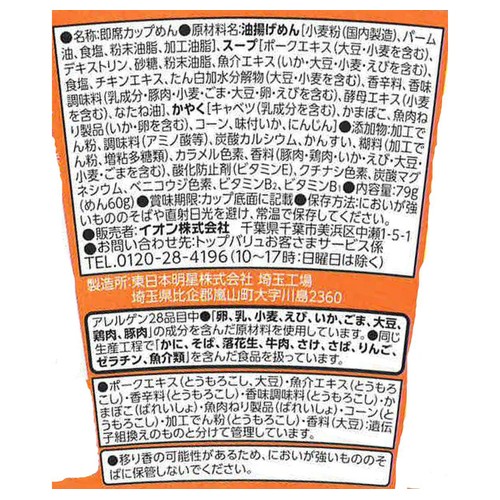 ●名称:即席カップめん●原材料名:油揚げめん[小麦粉(国内製造)、パーム
油、食塩、粉末油脂、加工油脂]、スープ[ポークエキス(大豆・小麦を含む)、
デキストリン、砂糖、粉末油脂、魚介エキス(いか・大豆・小麦・えびを含む)、
食塩、チキンエキス、たん白加水分解物(大豆・小麦を含む)、香辛料、香味
調味料(乳成分・豚肉・小麦・ごま・大豆・卵・えびを含む)、酵母エキス(小麦
を含む)、なたね油]、かやく[キャベツ(乳成分を含む)、かまぼこ、魚肉ね
り製品(いか・卵を含む)、コーン、味付いか、にんじん]●添加物:加工で
ん粉、調味料(アミノ酸等)、炭酸カルシウム、かんすい、糊料(加工で
ん粉、増粘多糖類)、カラメル色素、香料(豚肉・鶏肉・いか・えび・大豆・
小麦・ごまを含む)、酸化防止剤(ビタミンE)、クチナシ色素、炭酸マグ
ネシウム、ベニコウジ色素、ビタミンB₂、ビタミンB₁●内容量:79g
(めん60g)●賞味期限:カップ底面に記載●保存方法:においが強
いもののそばや直射日光を避け、常温で保存してください。
●販売者:イオン株式会社 千葉県千葉市美浜区中瀬1-5-1
●お問い合わせ先:トップバリュお客さまサービス係
TEL.0120-28-4196(10〜17時:日曜日は除く)
製造所:東日本明星株式会社 埼玉工場
埼玉県比企郡嵐山町大字川島2360
アレルゲン28品目中●「卵、乳、小麦、えび、いか、ごま、大豆、
鶏肉、豚肉」の成分を含んだ原材料を使用しています。●同じ
生産工程で「かに、そば、落花生、牛肉、さけ、さば、りんご、
ゼラチン、魚介類」を含んだ食品を扱っています。
●ポークエキス(とうもろこし、大豆)・魚介エキス(とうもろ
こし)・香辛料(とうもろこし)・香味調味料(とうもろこし)・か
まぼこ(ばれいしょ)・魚肉ねり製品(ばれいしょ)・コーン(と
うもろこし)・加工でん粉(とうもろこし)・香料(大豆):遺伝
子組換えのものと分けて管理しています。
●移り香の可能性があるため、においが強いもののそ
ばに保管しないでください。